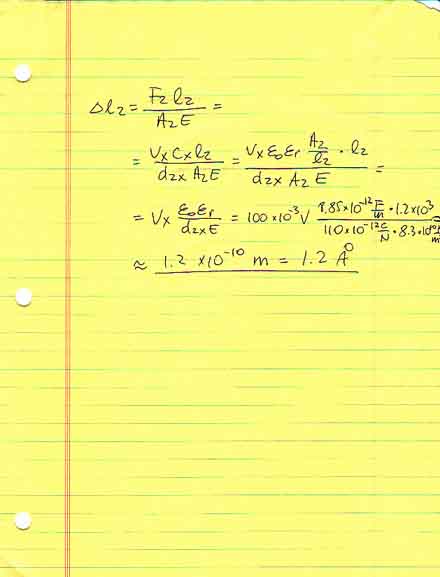 Δl₂ = F₂ l₂ / A₂ E =
= Vx Cx l₂ / d₂x A₂ E = Vx ε₀ εr A₂/l₂ · l₂ / d₂x A₂ E =
= Vx ε₀ εr / d₂x E = 100×10⁻³ V 8.85×10⁻¹² F/m · 1.2×10³ / 110×10⁻¹² C/N · 8.3×10
≈ 1.2 ×10⁻¹⁰ m = 1.2 Å